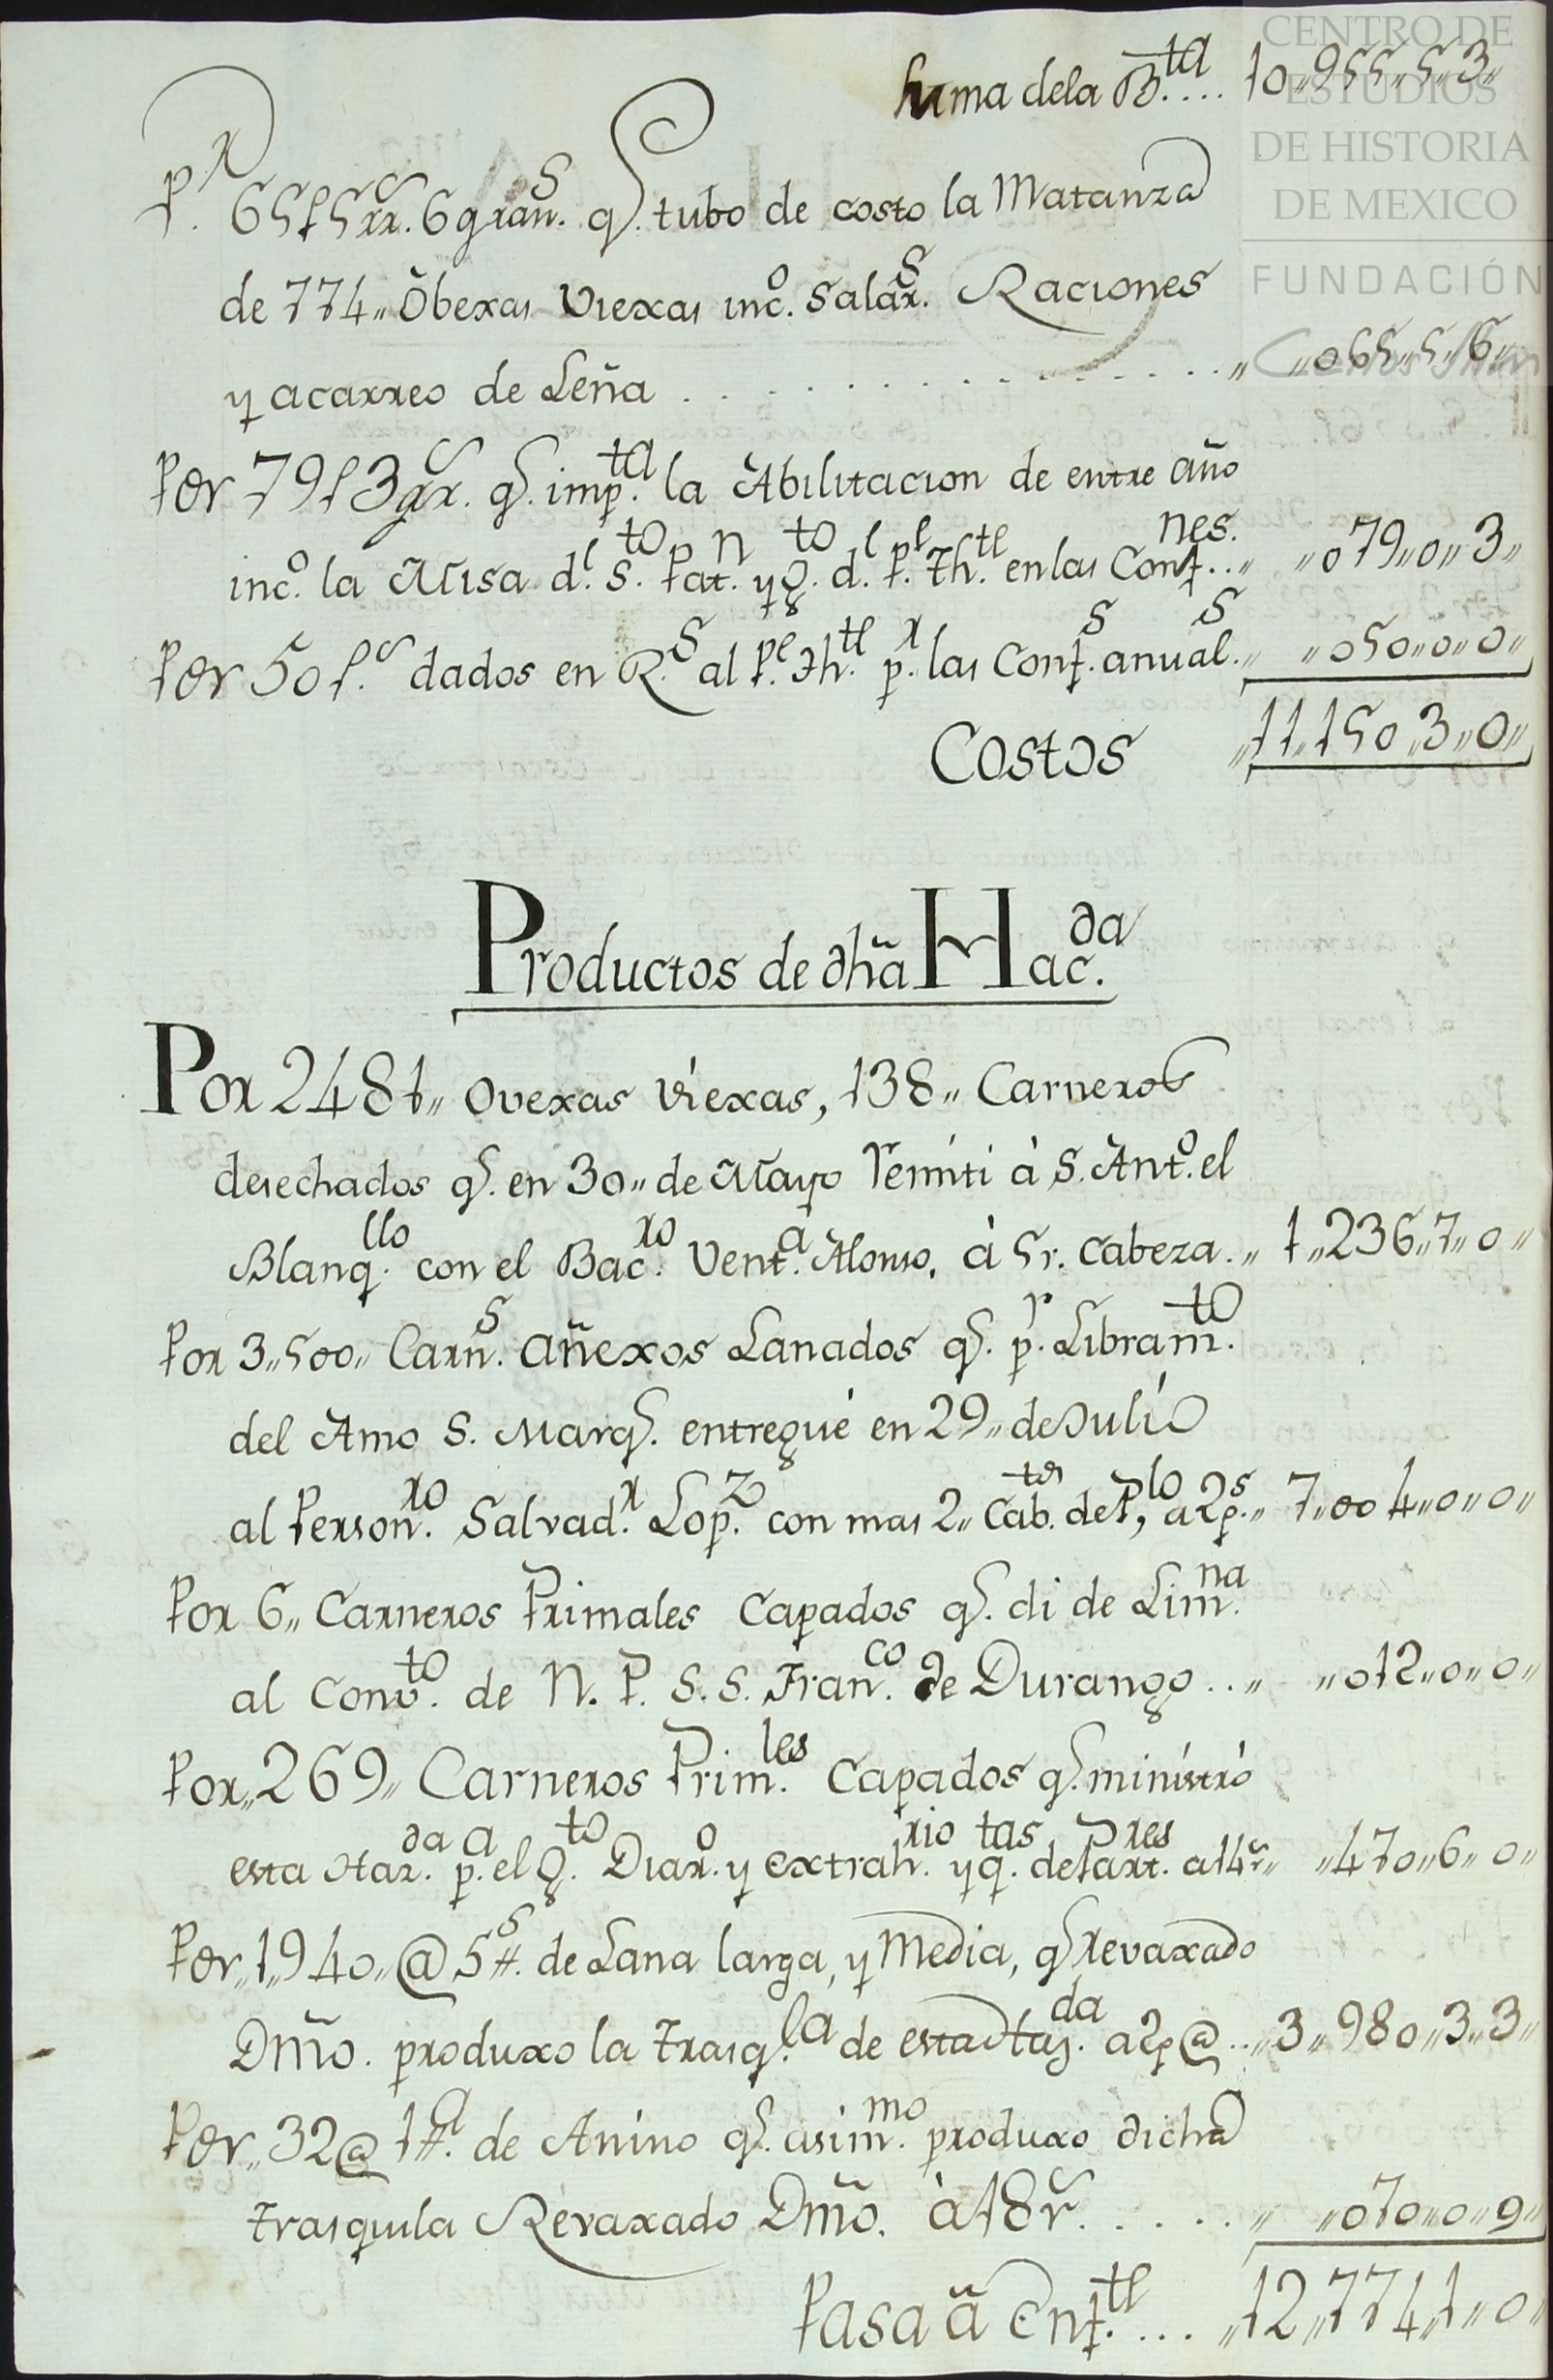 CENTRO DE
ESTUDIOS
DE HISTORIA
DE MEXICO
FUNDACIÓN
Suma dela B.ta .... 10,,955,,5,,3,,
P.r 65p5rr.s 6 gran.s q.e tubo de costo la Matanza
de 774,, Obexas Viexas inc.o Salar.s Raciones
y acarreo de Leña . . . . . . . . . . . . . ,, ,,065,,5,,6,,
Por 79p3gr.s q.e imp.ta la Abilitacion de entre año
inc.o la Misa d.l S.to Pat.n y g.to d.l P.e Th.tl en las Conf.nes. .. ,, ,,079,,0,,3,,
Por 50p.s dados en R.s al P.e Th.tl p.r las Conf.s anual.s ,, ,,050,,0,,0,,
Costos ,,11,,150,,3,,0,,
Productos de dhã Hac.da
Por 2481,, Ovexas Viexas, 138,, Carneros
desechados q.e en 30,, de Mayo remiti à S. Ant.o el
Blanq.llo con el Bac.ro Vent.a Alonso, à 5r. Cabeza.,, 1,,236,,7,,0,,
Por 3,,500,, Carn.s Añexos Lanados q.e p.r Libram.to
del Amo S. Marq.s entregué en 29,, de Julio
al Person.ro Salvad.r Lop.z con mas 2,, Cab.s de P.lo, a 2p.s,, 7,,004,,0,,0,,
Por 6,, Carneros Primales Capados q.e di de Lim.na
al Conv.to de N. P. S. S. Fran.co de Durango . . ,, ,,012,,0,,0,,
Por,,269,, Carneros Prim.les Capados q.e ministró
esta Haz.da p.a el g.to Diar.o y extrah.rio y q.tas de Part.res a 14r,, ,,470,,6,,0,,
Por,,1,,940,,@5#.s de Lana larga, y Media, q.e revaxado
Dmõ. produxo la Trasq.la de esta Haz.da a 2p@ .. ,,3,,980,,3,,3,,
Por,,32@1#.a de Anino q.e asim.mo produxo dicha
trasquila Revaxado Dmõ. à 18r.s . . . . . ,, ,,070,,0,,9,,
Pasa â Enf.tl .... ,,12,,774,,1,,0,,